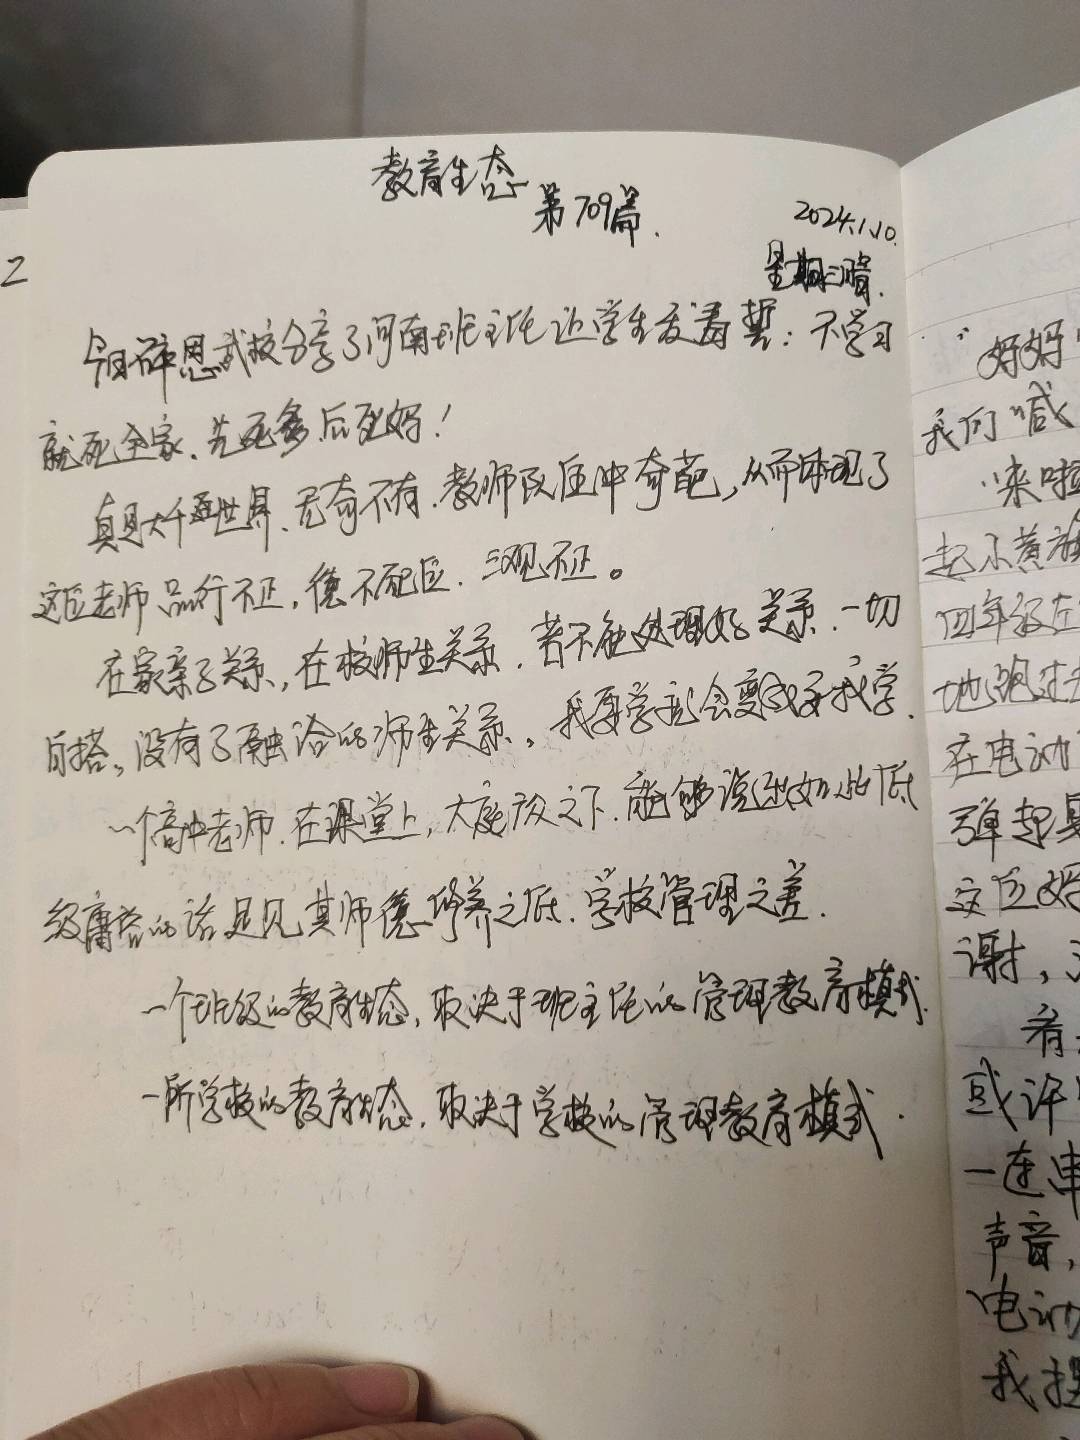 教育生态
第709篇.
2024.1.10.
星期三晴.
2
今日 恩 校分享了河南班主任让学生发毒誓：不学习
就死全家、先死爹后死妈！
真是大千世界、无奇不有.教师队伍中奇葩，从而体现了
这位老师品行不正，德不配位.三观不正。
在家亲子关系，在校师生关系.若不能处理好关系.一切
白搭。没有了融洽的师生关系。我要学就会变成要我学.
一个高中老师.在课堂上，大庭广众之下.能够说出如此低
级庸俗的话足见其师德修养之低.学校管理之差.
一个班级的教育生态，取决于班主任的管理教育模式.
一所学校的教育生态.取决于学校的管理教育模式.
“好好
我们“喊
“来啦
起小黄
四年级左
地跑过去
在电动
弹起
这位好
谢，
看
或许
一连串
声音，
电动
我